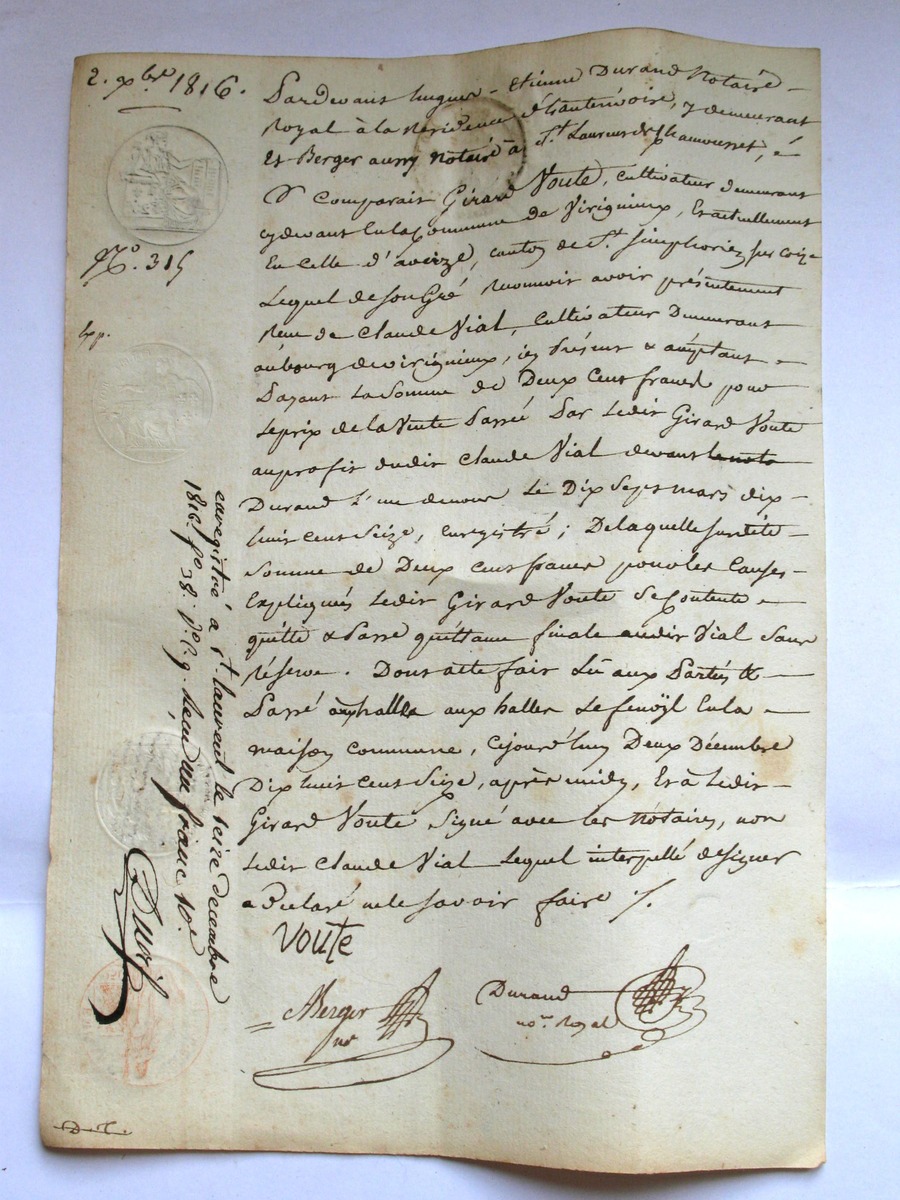 2. xbre 1816.
Pardevant hugues - Etienne Durand Notaire -
Royal à la Résidence d'hauterivoire, y demeurant
Et Berger aussy notaire à St. Laurent de Chamousset, é
St Comparait Girard Voute, cultivateur demeurant
cydevant En la Commune de Virignieux, Et actuellement
En Celle d'aveize, canton de St. Simphorien sur Coize
Lequel de son Gré Reconnoit avoir présentement
Reçu de Claude Vial, Cultivateur Demeurant
au bourg de virignieux, icy Présent & acceptant -
Payant La Somme de Deux Cent francs pour
Le prix de la Vente Passée Par Ledit Girard Voute
au profit dudit Claude Vial devant le nota
Durand L'un de nous Le Dix Sept mars dix -
huit cent Seize, Enregistré ; De laquelle susdite -
Somme de Deux cent francs pour les Causes -
Expliqués Ledit Girard Voute Se Contente -
quitte & Passe quittance finale audit Vial Sans
réserve. Dont acte fait Lu aux Parties &
Passé aux halles Le fenoÿl En la -
maison commune, Cejourd'huy Deux Décembre
Dix huit cent Seize, après midy, Et à Ledit -
Girard Voute Signé avec les Notaires, non
Ledit Claude Vial Lequel interpellé de signer
a Déclaré ne le savoir faire /.
Voute
Berger
nre
Durand
nore Royal
No. 315
Exp.
enregistré à St. laurent le seize decembre
1816. fo 38. vo. C. 9. Reçu un franc 10c.
D. T.